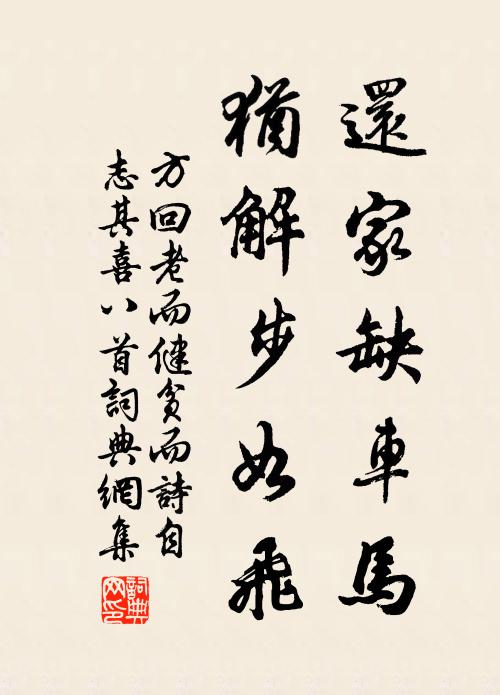 還家缺車馬
猶解步如飛
方回老而健貧而詩自
志其喜八首詞典網集
詞典
网印